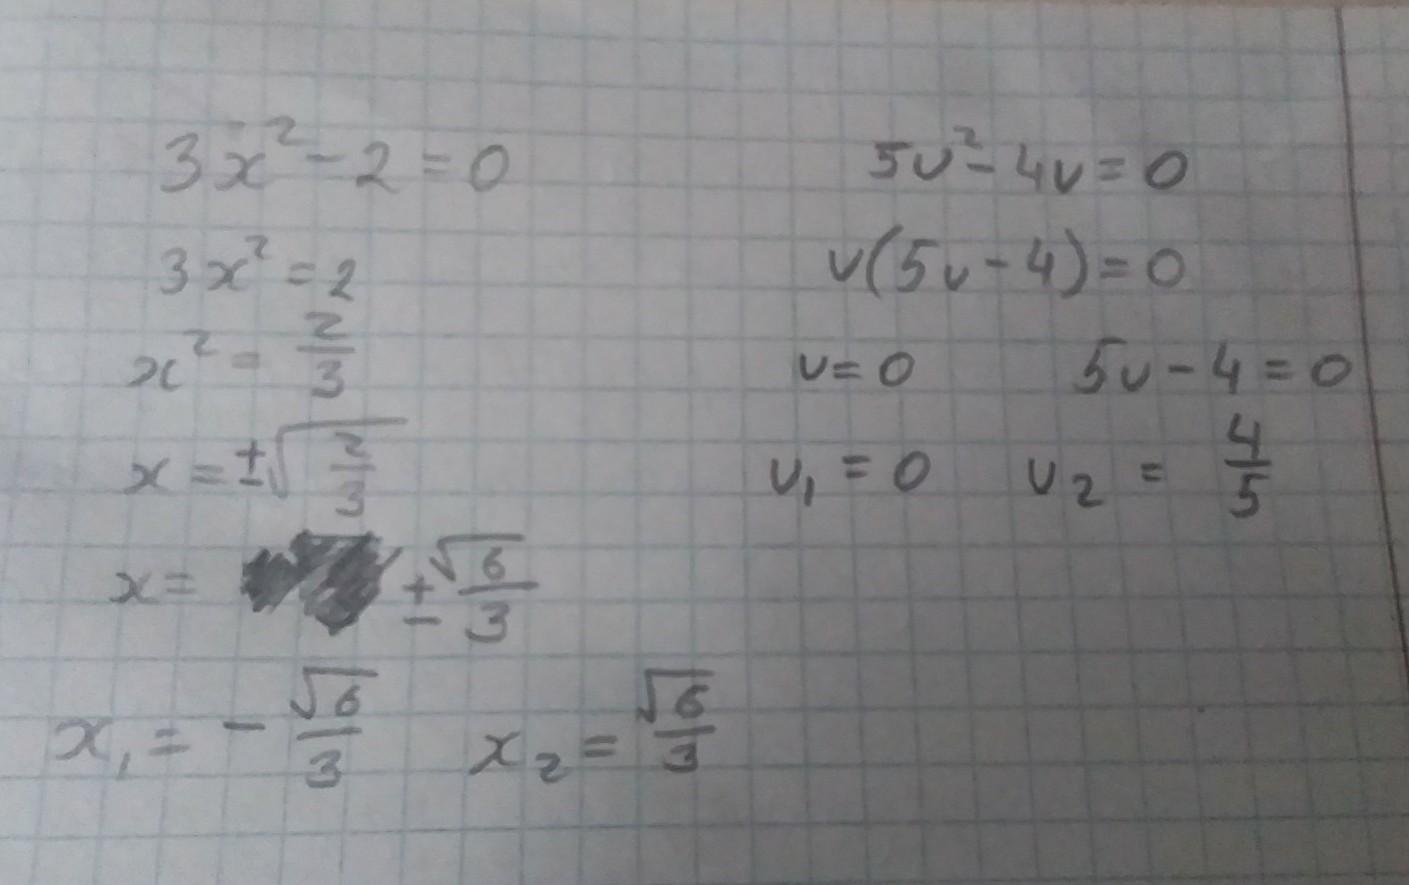 3x² - 2 = 0
3x² = 2
x² = 2/3
x = ±√(2/3)
x = ±√6/3
x₁ = - √6/3 x₂ = √6/3
5v² - 4v = 0
v(5v - 4) = 0
v = 0 5v - 4 = 0
v₁ = 0 v₂ = 4/5